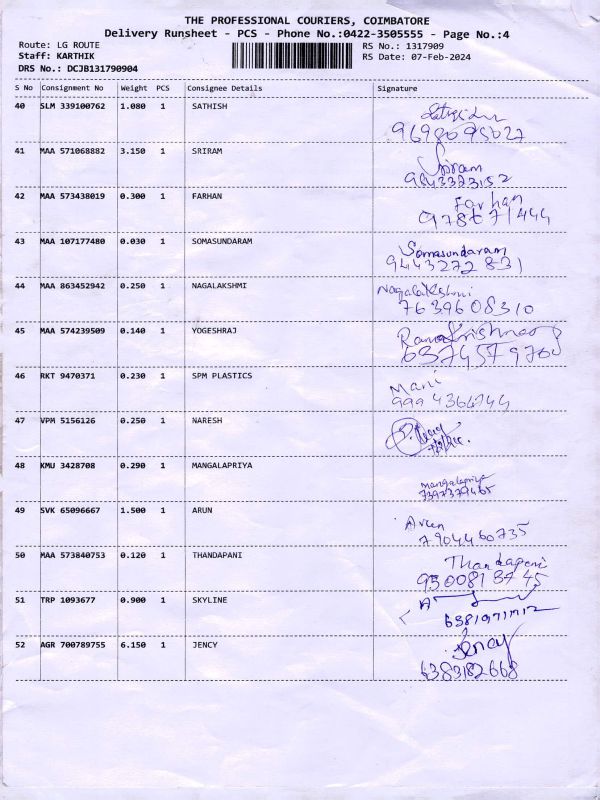 THE PROFESSIONAL COURIERS, COIMBATORE
Delivery Runsheet - PCS - Phone No.:0422-3505555 - Page No.:4
Route: LG ROUTE RS No.: 1317909
Staff: KARTHIK RS Date: 07-Feb-2024
DRS No.: DCJB131790904
S No Consignment No Weight PCS Consignee Details Signature
40 SLM 339100762 1.080 1 SATHISH
9698095027
41 MAA 571068882 3.150 1 SRIRAM Sriram
9843323152
42 MAA 573438019 0.300 1 FARHAN Farhan
978671444
43 MAA 107177480 0.030 1 SOMASUNDARAM Somasundaram
9443272831
44 MAA 863452942 0.250 1 NAGALAKSHMI Nagalakshmi
7639608310
45 MAA 574239509 0.140 1 YOGESHRAJ
6374579700
46 RKT 9470371 0.230 1 SPM PLASTICS Mani
9994364744
47 VPM 5156126 0.250 1 NARESH
48 KMU 3428708 0.290 1 MANGALAPRIYA Mangalapriya
7397379465
49 SVK 65096667 1.500 1 ARUN Arun
7904460735
50 MAA 573840753 0.120 1 THANDAPANI Thandapani
9500818445
51 TRP 1093677 0.900 1 SKYLINE
52 AGR 700789755 6.150 1 JENCY Jency
6383182668